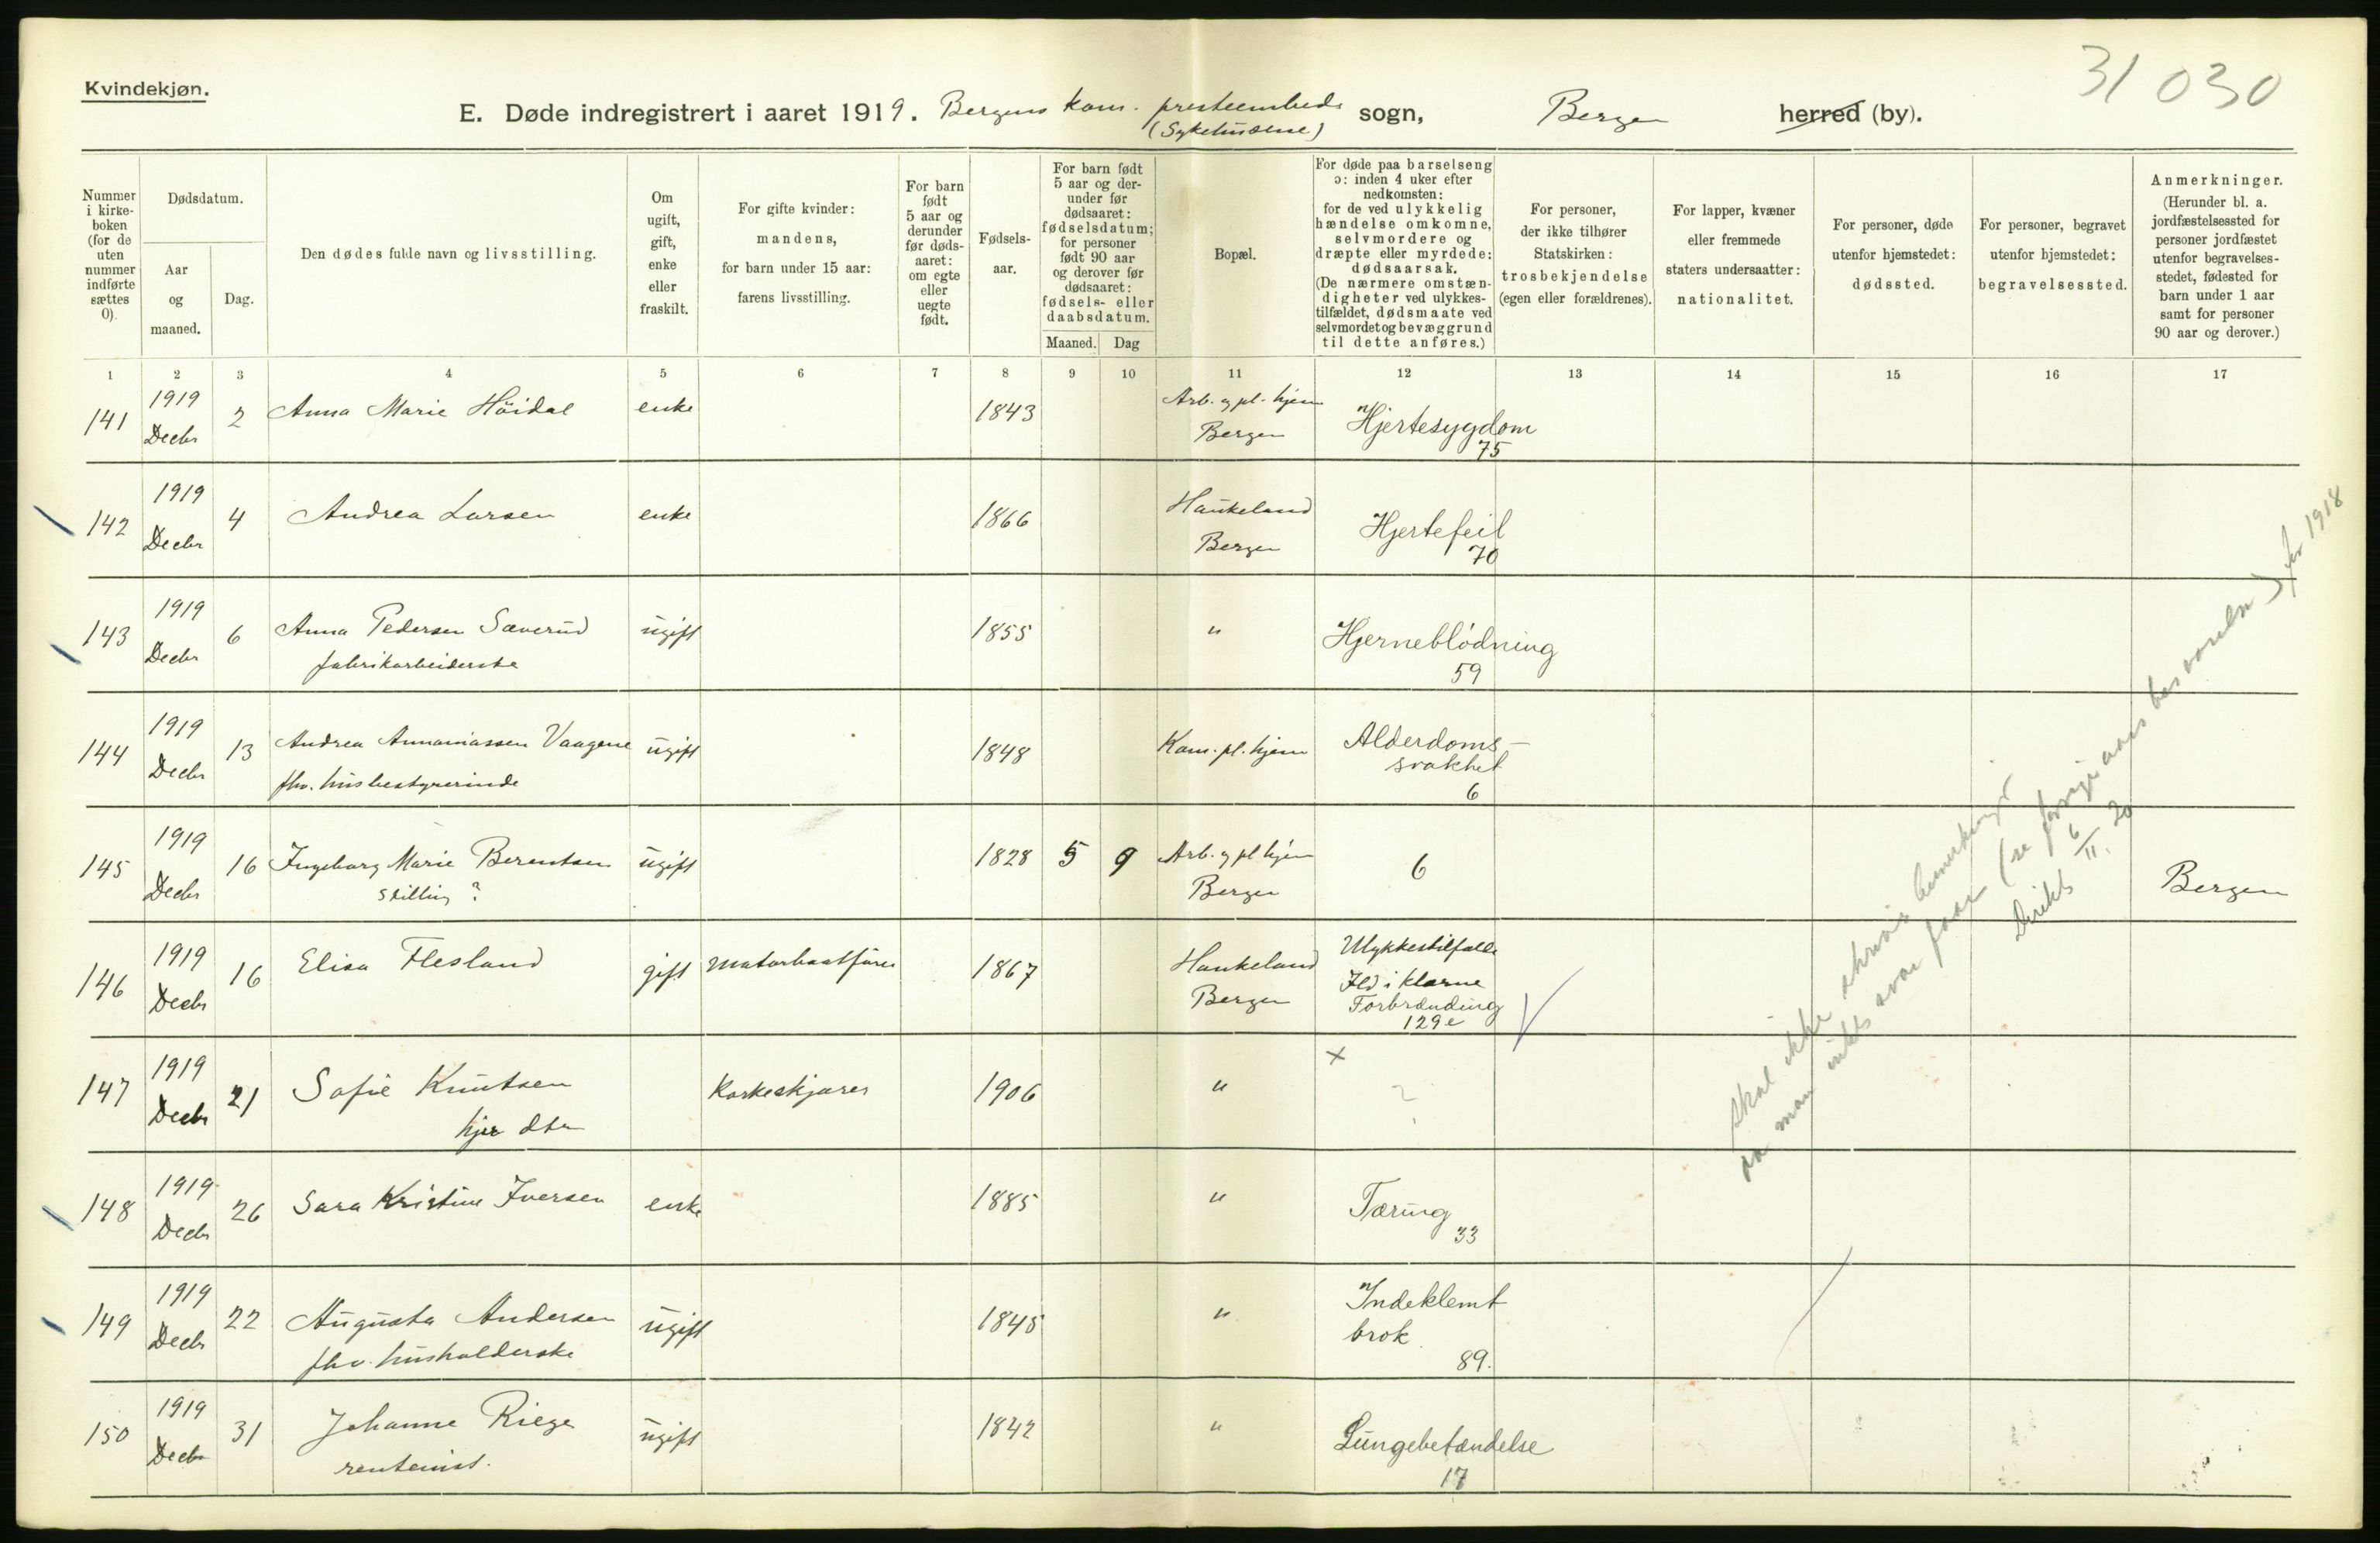 Kvindekjøn.
31 030
E. Døde indregistrert i aaret 1919. Bergens kom. presteembede sogn, Bergen herred (by).
(Sykehusene)
Nummer i kirkeboken (for de uten nummer indførte sættes 0).
Dødsdatum.
Aar og maaned.
Dag.
Den dødes fulde navn og livsstilling.
Om ugift, gift, enke eller fraskilt.
For gifte kvinder: mandens, for barn under 15 aar: farens livsstilling.
For barn født 5 aar og derunder før dødsaaret: om egte eller uegte født.
Fødselsaar.
For barn født 5 aar og derunder før dødsaaret: fødselsdatum; for personer født 90 aar og derover før dødsaaret: fødsels- eller daabsdatum.
Maaned. Dag
Bopæl.
For døde paa barselseng ɔ: inden 4 uker efter nedkomsten: for de ved ulykkelig hændelse omkomne, selvmordere og dræpte eller myrdede: dødsaarsak. (De nærmere omstændigheter ved ulykkestilfældet, dødsmaate ved selvmordet og bevæggrund til dette anføres.)
For personer, der ikke tilhører Statskirken: trosbekjendelse (egen eller forældrenes).
For lapper, kvæner eller fremmede staters undersaatter: nationalitet.
For personer, døde utenfor hjemstedet: dødssted.
For personer, begravet utenfor hjemstedet: begravelsessted.
Anmerkninger. (Herunder bl. a. jordfæstelsessted for personer jordfæstet utenfor begravelsesstedet, fødested for barn under 1 aar samt for personer 90 aar og derover.)
1 2 3 4 5 6 7 8 9 10 11 12 13 14 15 16 17
141 1919 Decbr 2 Anna Marie Höidal enke 1843 Arb. og pl. hjem Bergen Hjertesygdom 75
142 1919 Decbr 4 Andrea Larsen enke 1866 Haukeland Bergen Hjertefeil 70
143 1919 Decbr 6 Anna Pedersen Sæverud fabrikarbeiderske ugift 1855 " Hjerneblødning 59
144 1919 Decbr 13 Andrea Annaniassen Vaagene fhv. husbestyrerinde ugift 1848 Kom. pl. hjem Alderdoms- svakhet 6
145 1919 Decbr 16 Ingeborg Marie Berentsen stilling ? ugift 1828 5 9 Arb. og pl hjem Bergen 6 Bergen
146 1919 Decbr 16 Elisa Flesland gift motorbaatfører 1867 Haukeland Bergen Ulykkestilfælle Ild i klærne Forbrænding 129e
147 1919 Decbr 21 Sofie Knutsen hjv dtr korkeskjærer 1906 " x ?
148 1919 Decbr 26 Sara Kristine Iversen enke 1885 " Tæring 33
149 1919 Decbr 22 Augusta Andersen fhv. husholderske ugift 1845 " Indeklemt brok 89.
150 1919 Decbr 31 Johanne Riege rentenist. ugift 1842 " Lungebetændelse 17
skal ikke skrives bemerkning
da man intet svar faar (se forrige aars besvarelse) for 1918
Direkte 6/II. 20